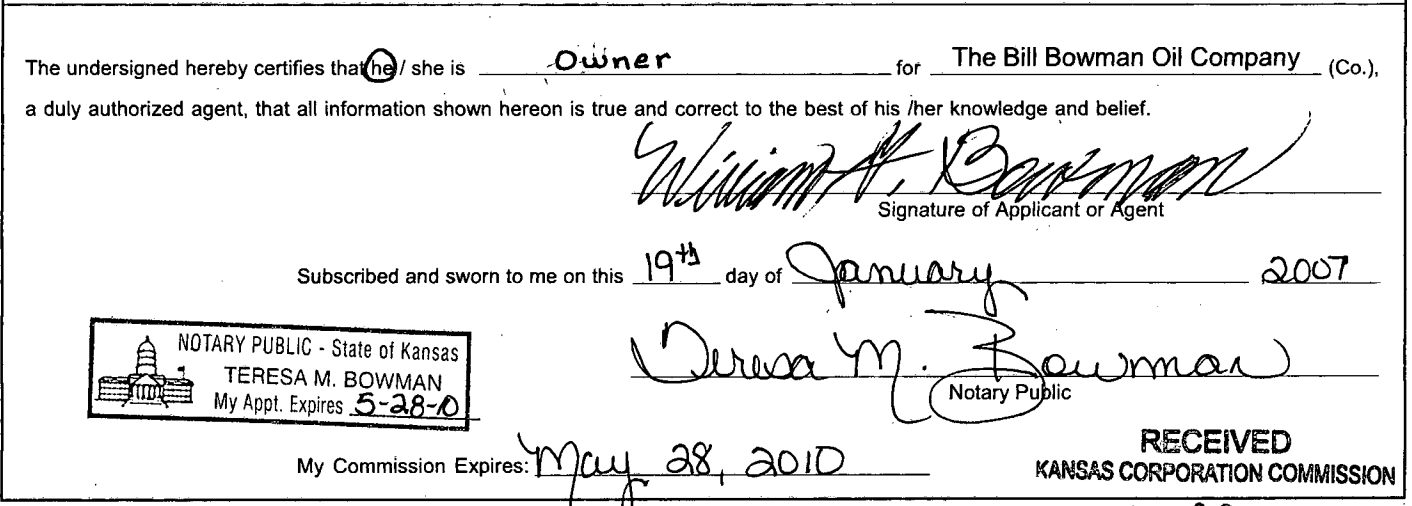 The undersigned hereby certifies that he / she is Owner for The Bill Bowman Oil Company (Co.),
a duly authorized agent, that all information shown hereon is true and correct to the best of his /her knowledge and belief.
William H. Bowman
Signature of Applicant or Agent
Subscribed and sworn to me on this 19th day of January 2007
NOTARY PUBLIC - State of Kansas
TERESA M. BOWMAN
My Appt. Expires 5-28-10
Teresa M. Bowman
Notary Public
My Commission Expires: May 28, 2010
RECEIVED
KANSAS CORPORATION COMMISSION